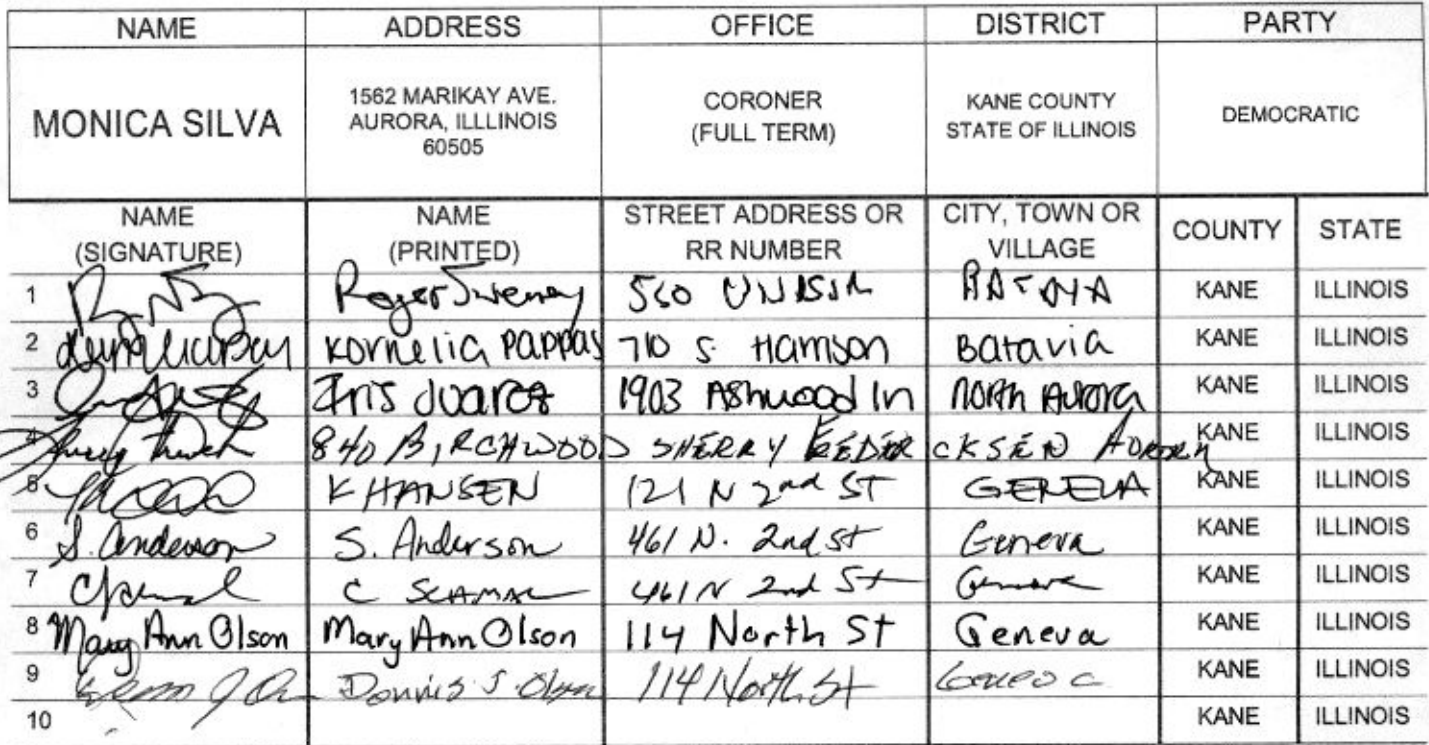 NAME ADDRESS OFFICE DISTRICT PARTY
MONICA SILVA
1562 MARIKAY AVE.
AURORA, ILLLINOIS
60505
CORONER
(FULL TERM)
KANE COUNTY
STATE OF ILLINOIS
DEMOCRATIC
NAME
(SIGNATURE)
NAME
(PRINTED)
STREET ADDRESS OR
RR NUMBER
CITY, TOWN OR
VILLAGE
COUNTY STATE
1 Roger Sweeney 560 KANE ILLINOIS
2 Kornelia Pappas 710 S Harrison Batavia KANE ILLINOIS
3 Iris Juarez 1903 Ashwood ln North Aurora KANE ILLINOIS
4 840 BIRCHWOOD SHERRY AURORA KANE ILLINOIS
5 K HANSEN 121 N 2nd ST GENEVA KANE ILLINOIS
6 S. Anderson S. Anderson 461 N. 2nd St Geneva KANE ILLINOIS
7 C 461 N 2nd St Geneva KANE ILLINOIS
8 Mary Ann Olson Mary Ann Olson 114 North St Geneva KANE ILLINOIS
9 Dennis J. Olson 114 North St Geneva KANE ILLINOIS
10 KANE ILLINOIS